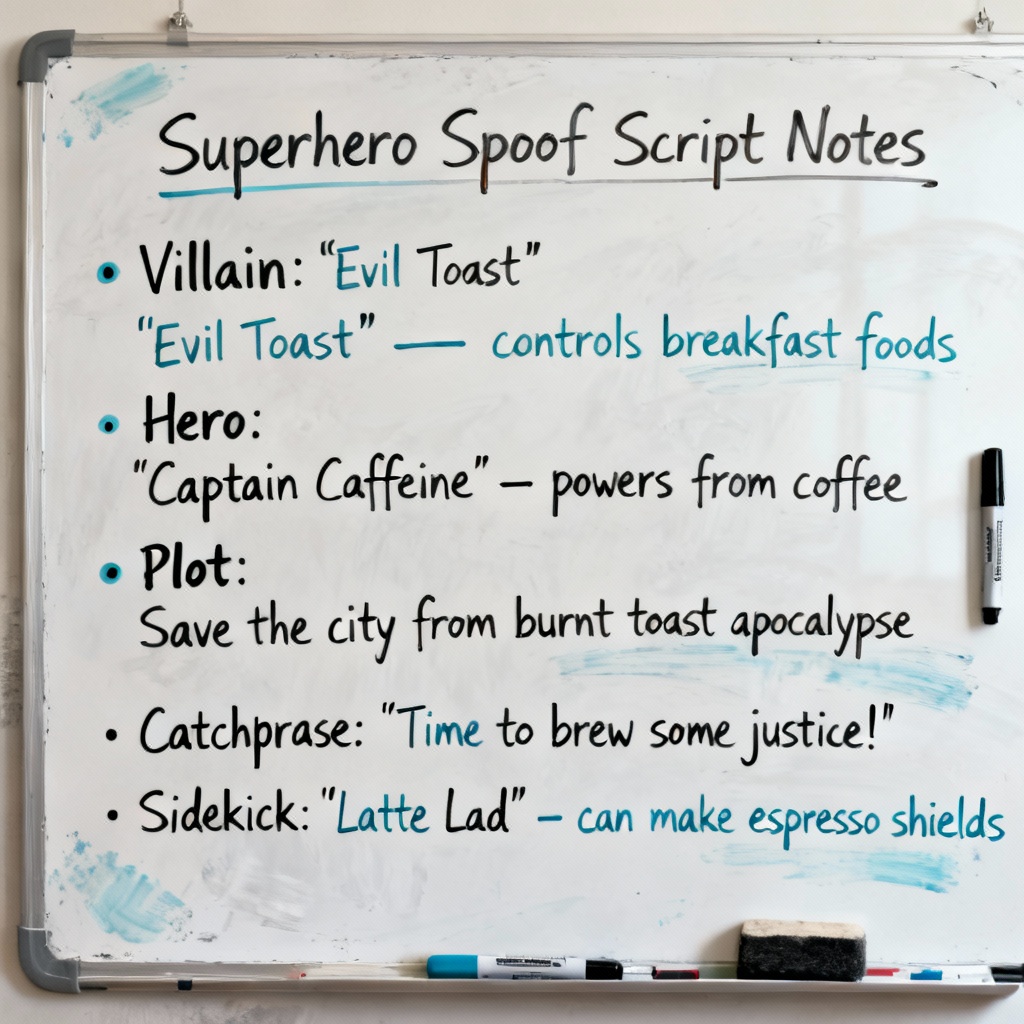 Superhero Spoof Script Notes
• Villain: “Evil Toast”
“Evil Toast” — controls breakfast foods
• Hero:
“Captain Caffeine” – powers from coffee
• Plot:
Save the city from burnt toast apocalypse
• Catchprase: “Time to brew some justice!”
• Sidekick: “Latte Lad” – can make espresso shields